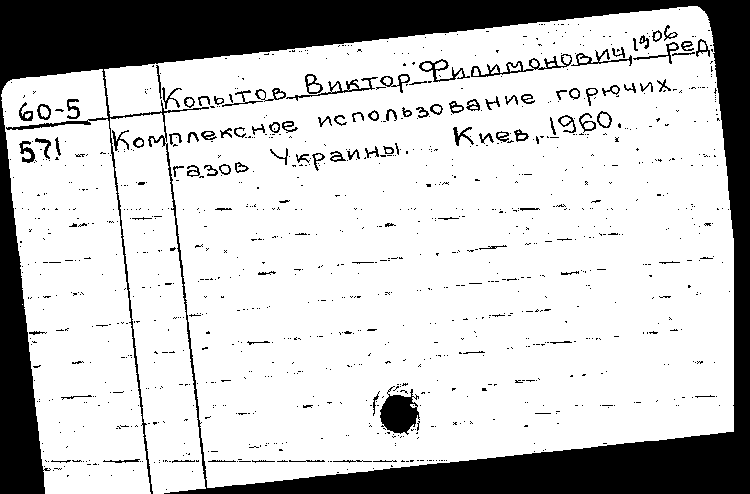 60-5 Копытов, Виктор Филимонович, 1906 ред.
571 Комплексное использование горючих
газов Украины. Киев, 1960.